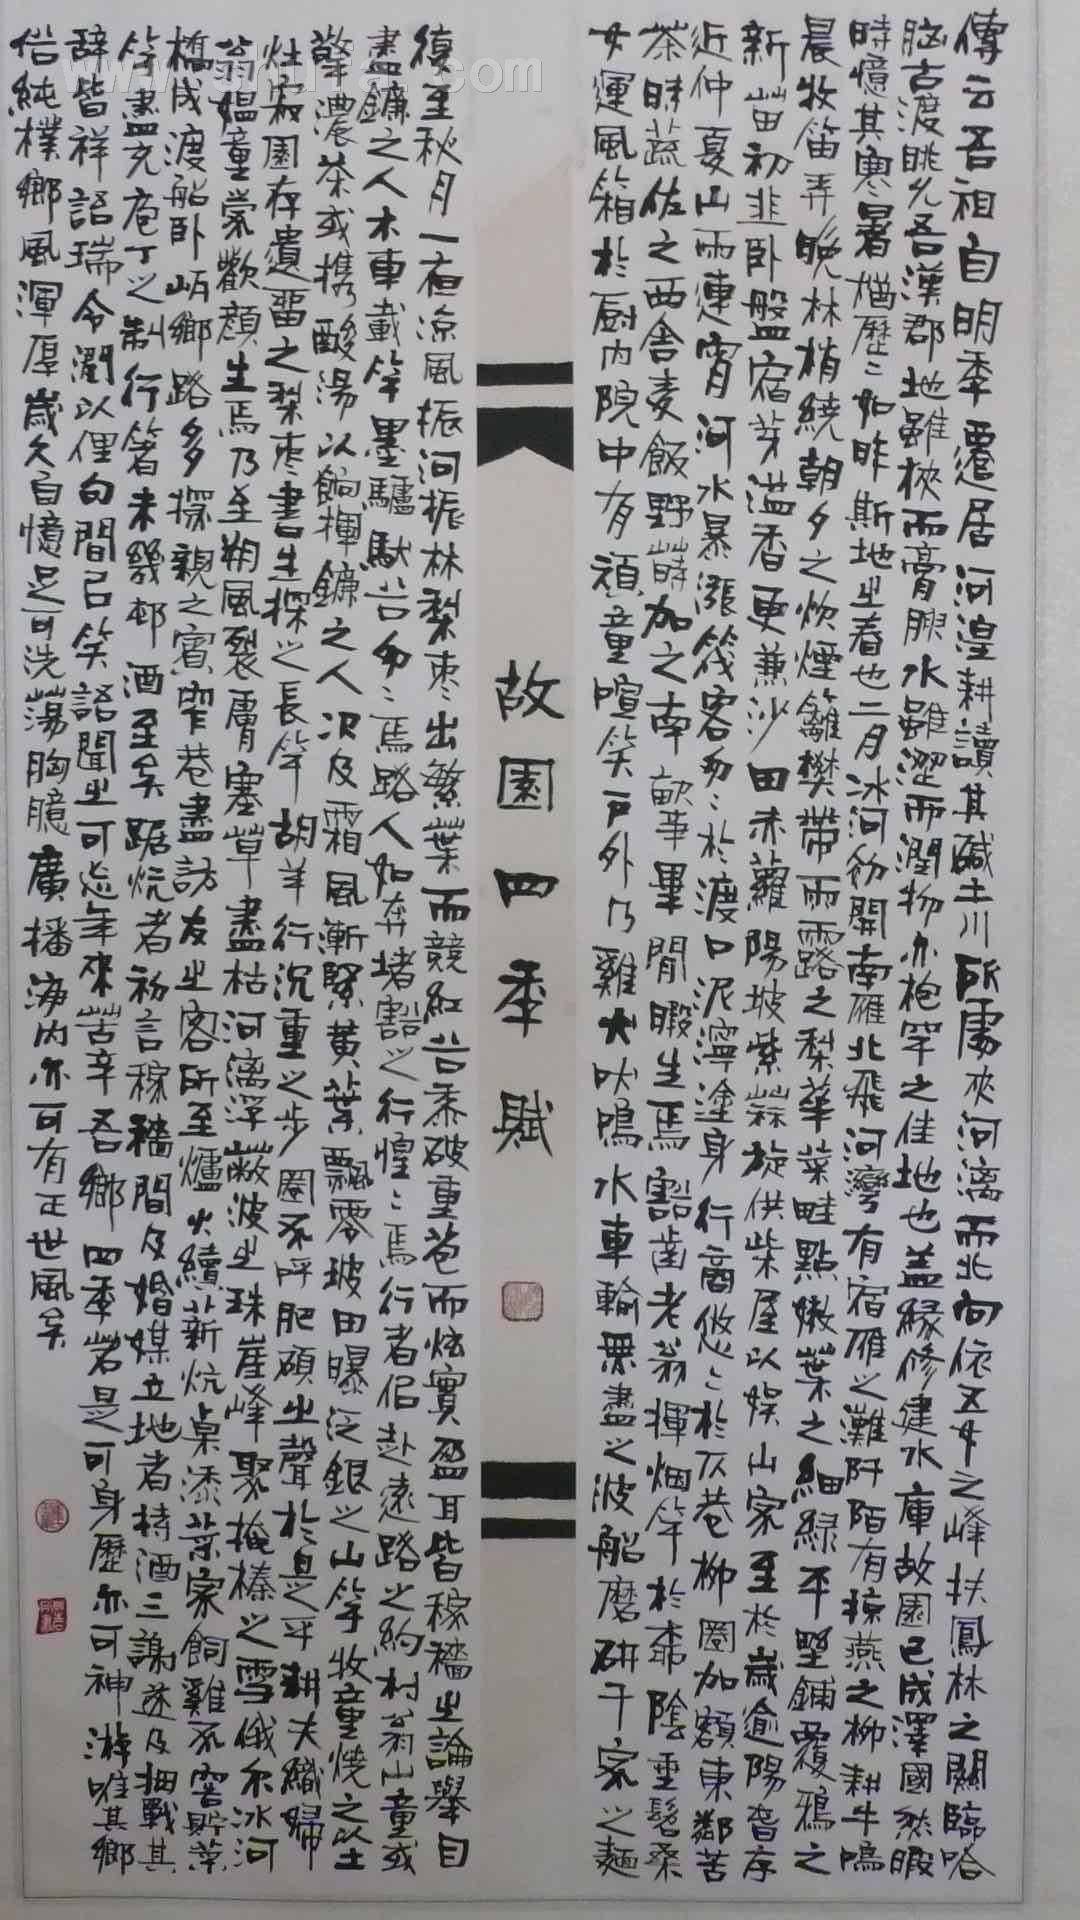 傳云吾祖自明季遷居河湟耕讀其鹹土川所屬夾河漓而北向依五女之峰扶鳳林之關臨哈
腦古渡眺允吾漢郡地雖狹而膏腴水雖澀而潤物亦枹罕之佳地也蓋緣修建水庫故園已成澤國然暇
時憶其寒暑猶歷歷如昨斯地之春也二月冰河初開南雁北飛河灣有宿雁之灘阡陌有掠燕之柳耕牛鳴
晨牧笛弄晚林梢繞朝夕之炊煙籬樊帶雨露之梨華菜畦點嫩葉之細綠平野鋪覆鴉之
新苗初韭卧盤宿芽溢香更兼沙田赤蘿陽坡紫蒜旋供柴屋以娛山家至於歲逾陽耆序
近仲夏山雨連宵河水暴漲筏客匆匆於渡口泥濘塗身行商悠悠於仄巷柳圈加額東鄰苦
茶時蔬佐之西舍麦飯野蒔加之南畝事畢閒暇生焉豁齒老翁揮烟竿於柰陰垂髫桑
女運風箱於廚內院中有頑童喧笑戶外乃雞犬吠鳴水車輸無盡之波船磨研千家之麵
故園四季賦
復至秋月一夜涼風振河振林梨棗出繁葉而競紅苔黍破重苞而炫實盈耳皆稼穡之論舉目
盡鐮之人木車載竿墨驢馱谷匆匆焉路人如奔堵豁之行惶惶焉行者侶赴遠路之約村翁山童或
擎濃茶或携酸湯以餉揮鐮之人次及霜風漸緊黃葉飄零坡田曝泛銀之山竽牧童燒之以土
灶寂園存遺留之梨棗書生探之長竿胡羊行沉重之步圈豕呼肥碩之聲於是乎耕夫織婦
翁媼童蒙歡顏生焉乃至朔風裂膚塞草盡枯河漓浮蔽波之珠崖峰聚掩榛之雪俄尔冰河
橋成渡船卧岍鄉路多探親之賓窄巷盡訪友之客所至爐火續薪炕桌添菜家飼雞豕窖貯菜
竽盡充庖丁之制行箸未幾邨酒至矣踞炕者初言稼穡間及婚媒立地者持酒三讓遂及拇戰其
辭皆祥語瑞令潤以俚句間已笑語聞之可忘年來苦辛吾鄉四季若是可身歷亦可神游唯其鄉
俗純樸鄉風渾厚歲久自憶足可洗蕩胸臆廣播海内亦可有正世風矣